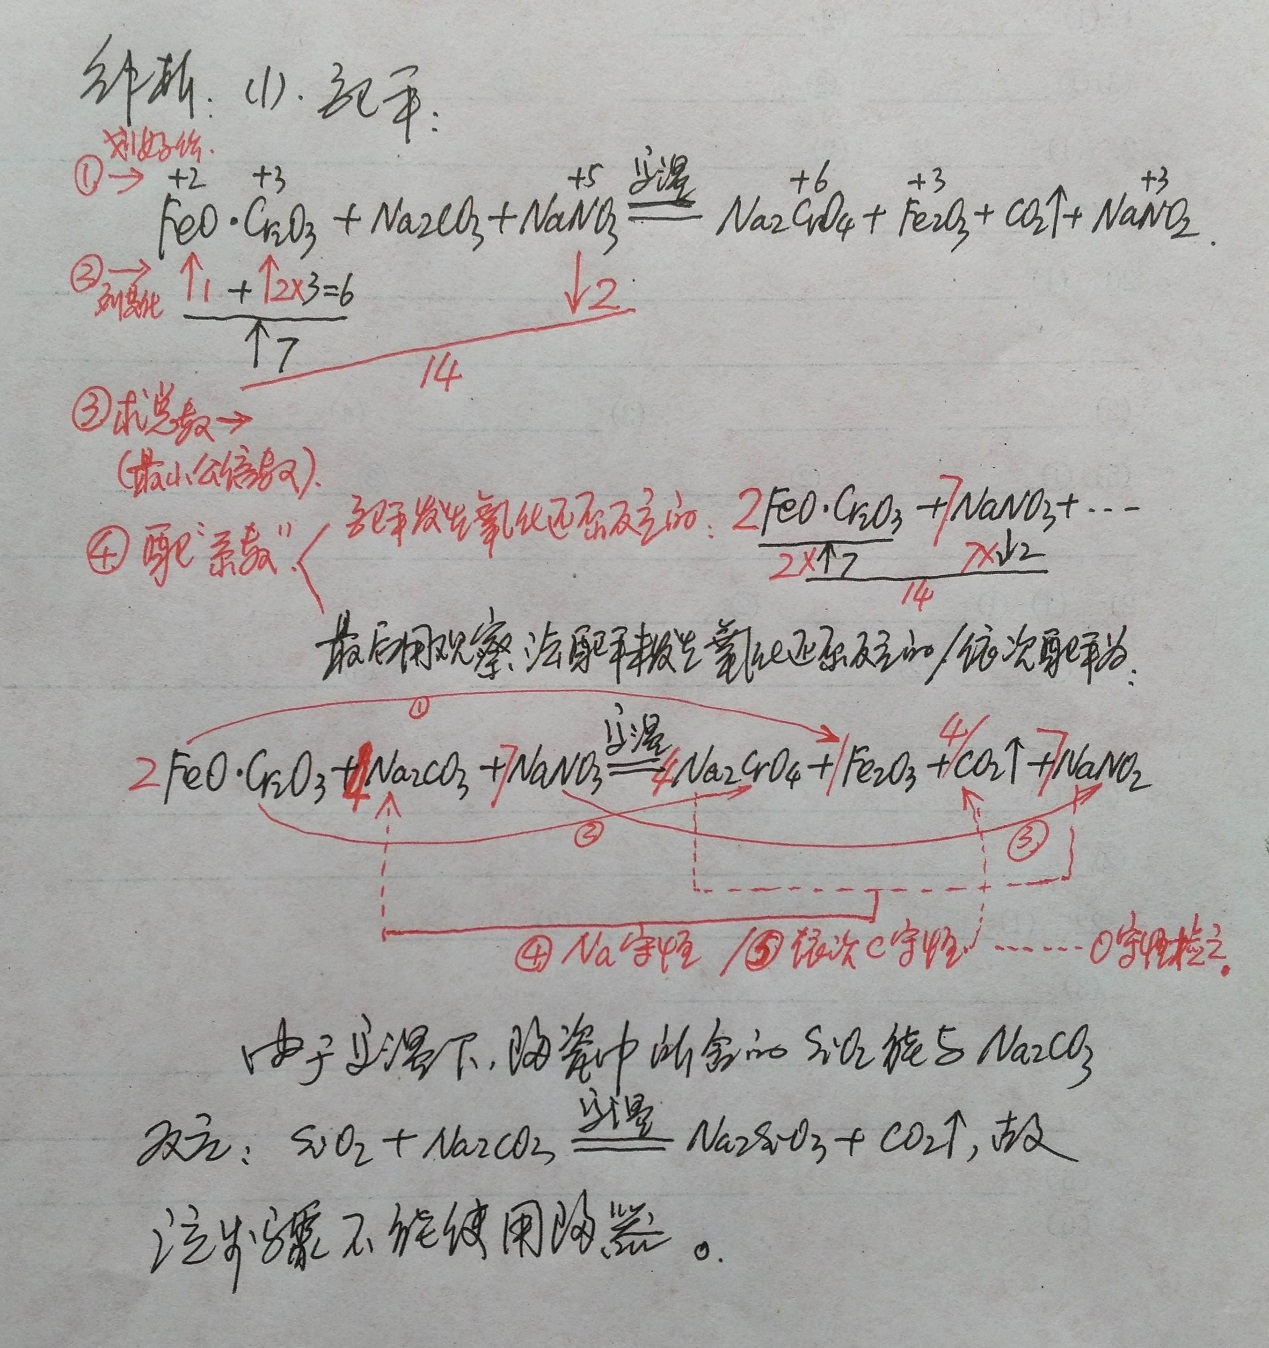 解析: (1). 配平:
划好价.
① → +2 +3 +5 高温 +6 +3 +3
FeO·Cr₂O₃ + Na₂CO₃ + NaNO₃ ══ Na₂CrO₄ + Fe₂O₃ + CO₂↑ + NaNO₂.
② → ↑1 + ↑2×3=6 ↓2
列变化
↑7 14
③ 求总数→
(最小公倍数).
④ 配"系数" 配平发生氧化还原反应的: 2FeO·Cr₂O₃ + 7NaNO₃ + ---
2×↑7 7×↓2
14
最后用观察法配平未发生氧化还原反应的/依次配平为:
①
高温
2FeO·Cr₂O₃ + 4Na₂CO₃ + 7NaNO₃ ══ 4Na₂CrO₄ + 1Fe₂O₃ + 4CO₂↑ + 7NaNO₂
② ③
④ Na守恒 / ⑤ 依次C守恒 ------ O守恒检立.
由于高温下, 陶瓷中所含的 SiO₂ 能与 Na₂CO₃
高温
反应: SiO₂ + Na₂CO₃ ══ Na₂SiO₃ + CO₂↑, 故
该步骤不能使用陶瓷。